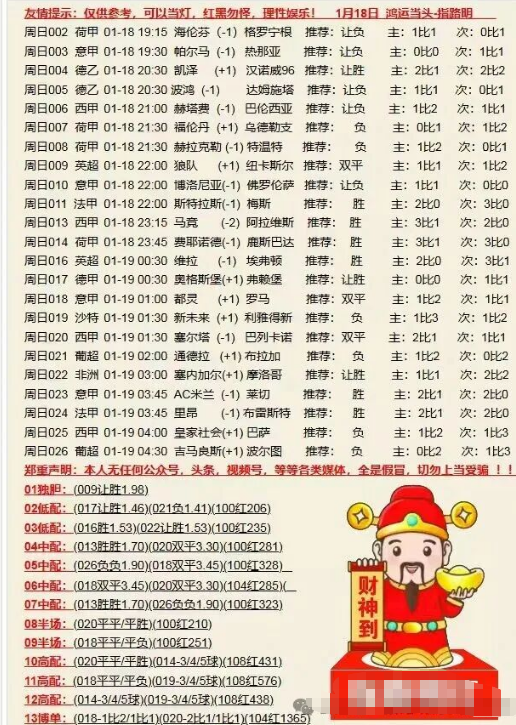 友情提示：仅供参考，可以当灯，红黑勿怪，理性娱乐！ 1月18日 鸿运当头-指路明
周日002 荷甲 01-18 19:15 海伦芬 (-1) 格罗宁根 推荐：让负 主：1比1 次：0比1
周日003 意甲 01-18 19:30 帕尔马 (-1) 热那亚 推荐：让负 主：0比0 次：1比1
周日004 德乙 01-18 20:30 凯泽 (+1) 汉诺威96 推荐：让胜 主：2比1 次：2比2
周日005 德乙 01-18 20:30 波鸿 (-1) 达姆施塔 推荐：让负 主：1比1 次：1比2
周日006 西甲 01-18 21:00 赫塔费 (-1) 巴伦西亚 推荐：让负 主：1比2 次：1比1
周日007 荷甲 01-18 21:30 福伦丹 (+1) 乌德勒支 推荐： 负 主：0比1 次：1比2
周日008 荷甲 01-18 21:30 赫拉克勒(-1) 特温特 推荐： 负 主：1比2 次：0比2
周日009 英超 01-18 22:00 狼队 (+1) 纽卡斯尔 推荐：双平 主：1比1 次：1比2
周日010 意甲 01-18 22:00 博洛尼亚(-1) 佛罗伦萨 推荐：让负 主：1比1 次：0比0
周日011 法甲 01-18 22:00 斯特拉斯(-1) 梅斯 推荐： 胜 主：2比0 次：3比0
周日013 西甲 01-18 23:15 马竞 (-2) 阿拉维斯 推荐： 胜 主：3比1 次：2比1
周日014 荷甲 01-18 23:45 费耶诺德(-1) 鹿斯巴达 推荐： 胜 主：3比1 次：3比0
周日016 英超 01-19 00:30 维拉 (-1) 埃弗顿 推荐： 胜 主：2比0 次：3比1
周日017 德甲 01-19 00:30 奥格斯堡(+1) 弗赖堡 推荐：让胜 主：1比1 次：0比0
周日018 意甲 01-19 01:00 都灵 (+1) 罗马 推荐：双平 主：1比2 次：1比1
周日019 沙特 01-19 01:30 新未来 (+1) 利雅得新 推荐： 负 主：1比3 次：1比2
周日020 西甲 01-19 01:30 塞尔塔 (-1) 巴列卡诺 推荐：双平 主：2比1 次：1比1
周日021 葡超 01-19 02:00 通德拉 (+1) 布拉加 推荐： 负 主：1比2 次：0比2
周日022 非洲 01-19 03:00 塞内加尔(+1) 摩洛哥 推荐：让胜 主：1比1 次：1比2
周日023 意甲 01-19 03:45 AC米兰 (-1) 莱切 推荐： 胜 主：2比1 次：2比0
周日024 法甲 01-19 03:45 里昂 (-1) 布雷斯特 推荐： 胜 主：2比1 次：2比0
周日025 西甲 01-19 04:00 皇家社会(+1) 巴萨 推荐： 负 主：1比2 次：1比3
周日026 葡超 01-19 04:00 吉马良斯(+1) 波尔图 推荐： 负 主：0比2 次：1比3
郑重声明：本人无任何公众号，头条，视频号，等等各类媒体，全是假冒，切勿上当受骗 ！！
01独胆：(009让胜1.98)
02低配：(017让胜1.46)(021负1.41)(100红206)
03低配：(016胜1.53)(022让胜1.53)(100红235)
04中配：(013胜胜1.70)(020双平3.30)(100红281)
05中配：(026负负1.90)(018双平3.45)(100红328)
06中配：(018双平3.45)(020双平3.30)(104红285)(
07中配：(013胜胜1.70)(026负负1.90)(100红323)
08半场：(020平平/平胜)(100红210)
09半场：(018平平/平负)(100红251)
10高配：(020平平/平胜)(014-3/4/5球)(108红431)
11高配：(018平平/平负)(019-3/4/5球)(108红576)
12高配：(014-3/4/5球)(019-3/4/5球)(108红438)
10博单：(018-1比2/1比1)(020-2比1/1比1)(104红1365)
财神到